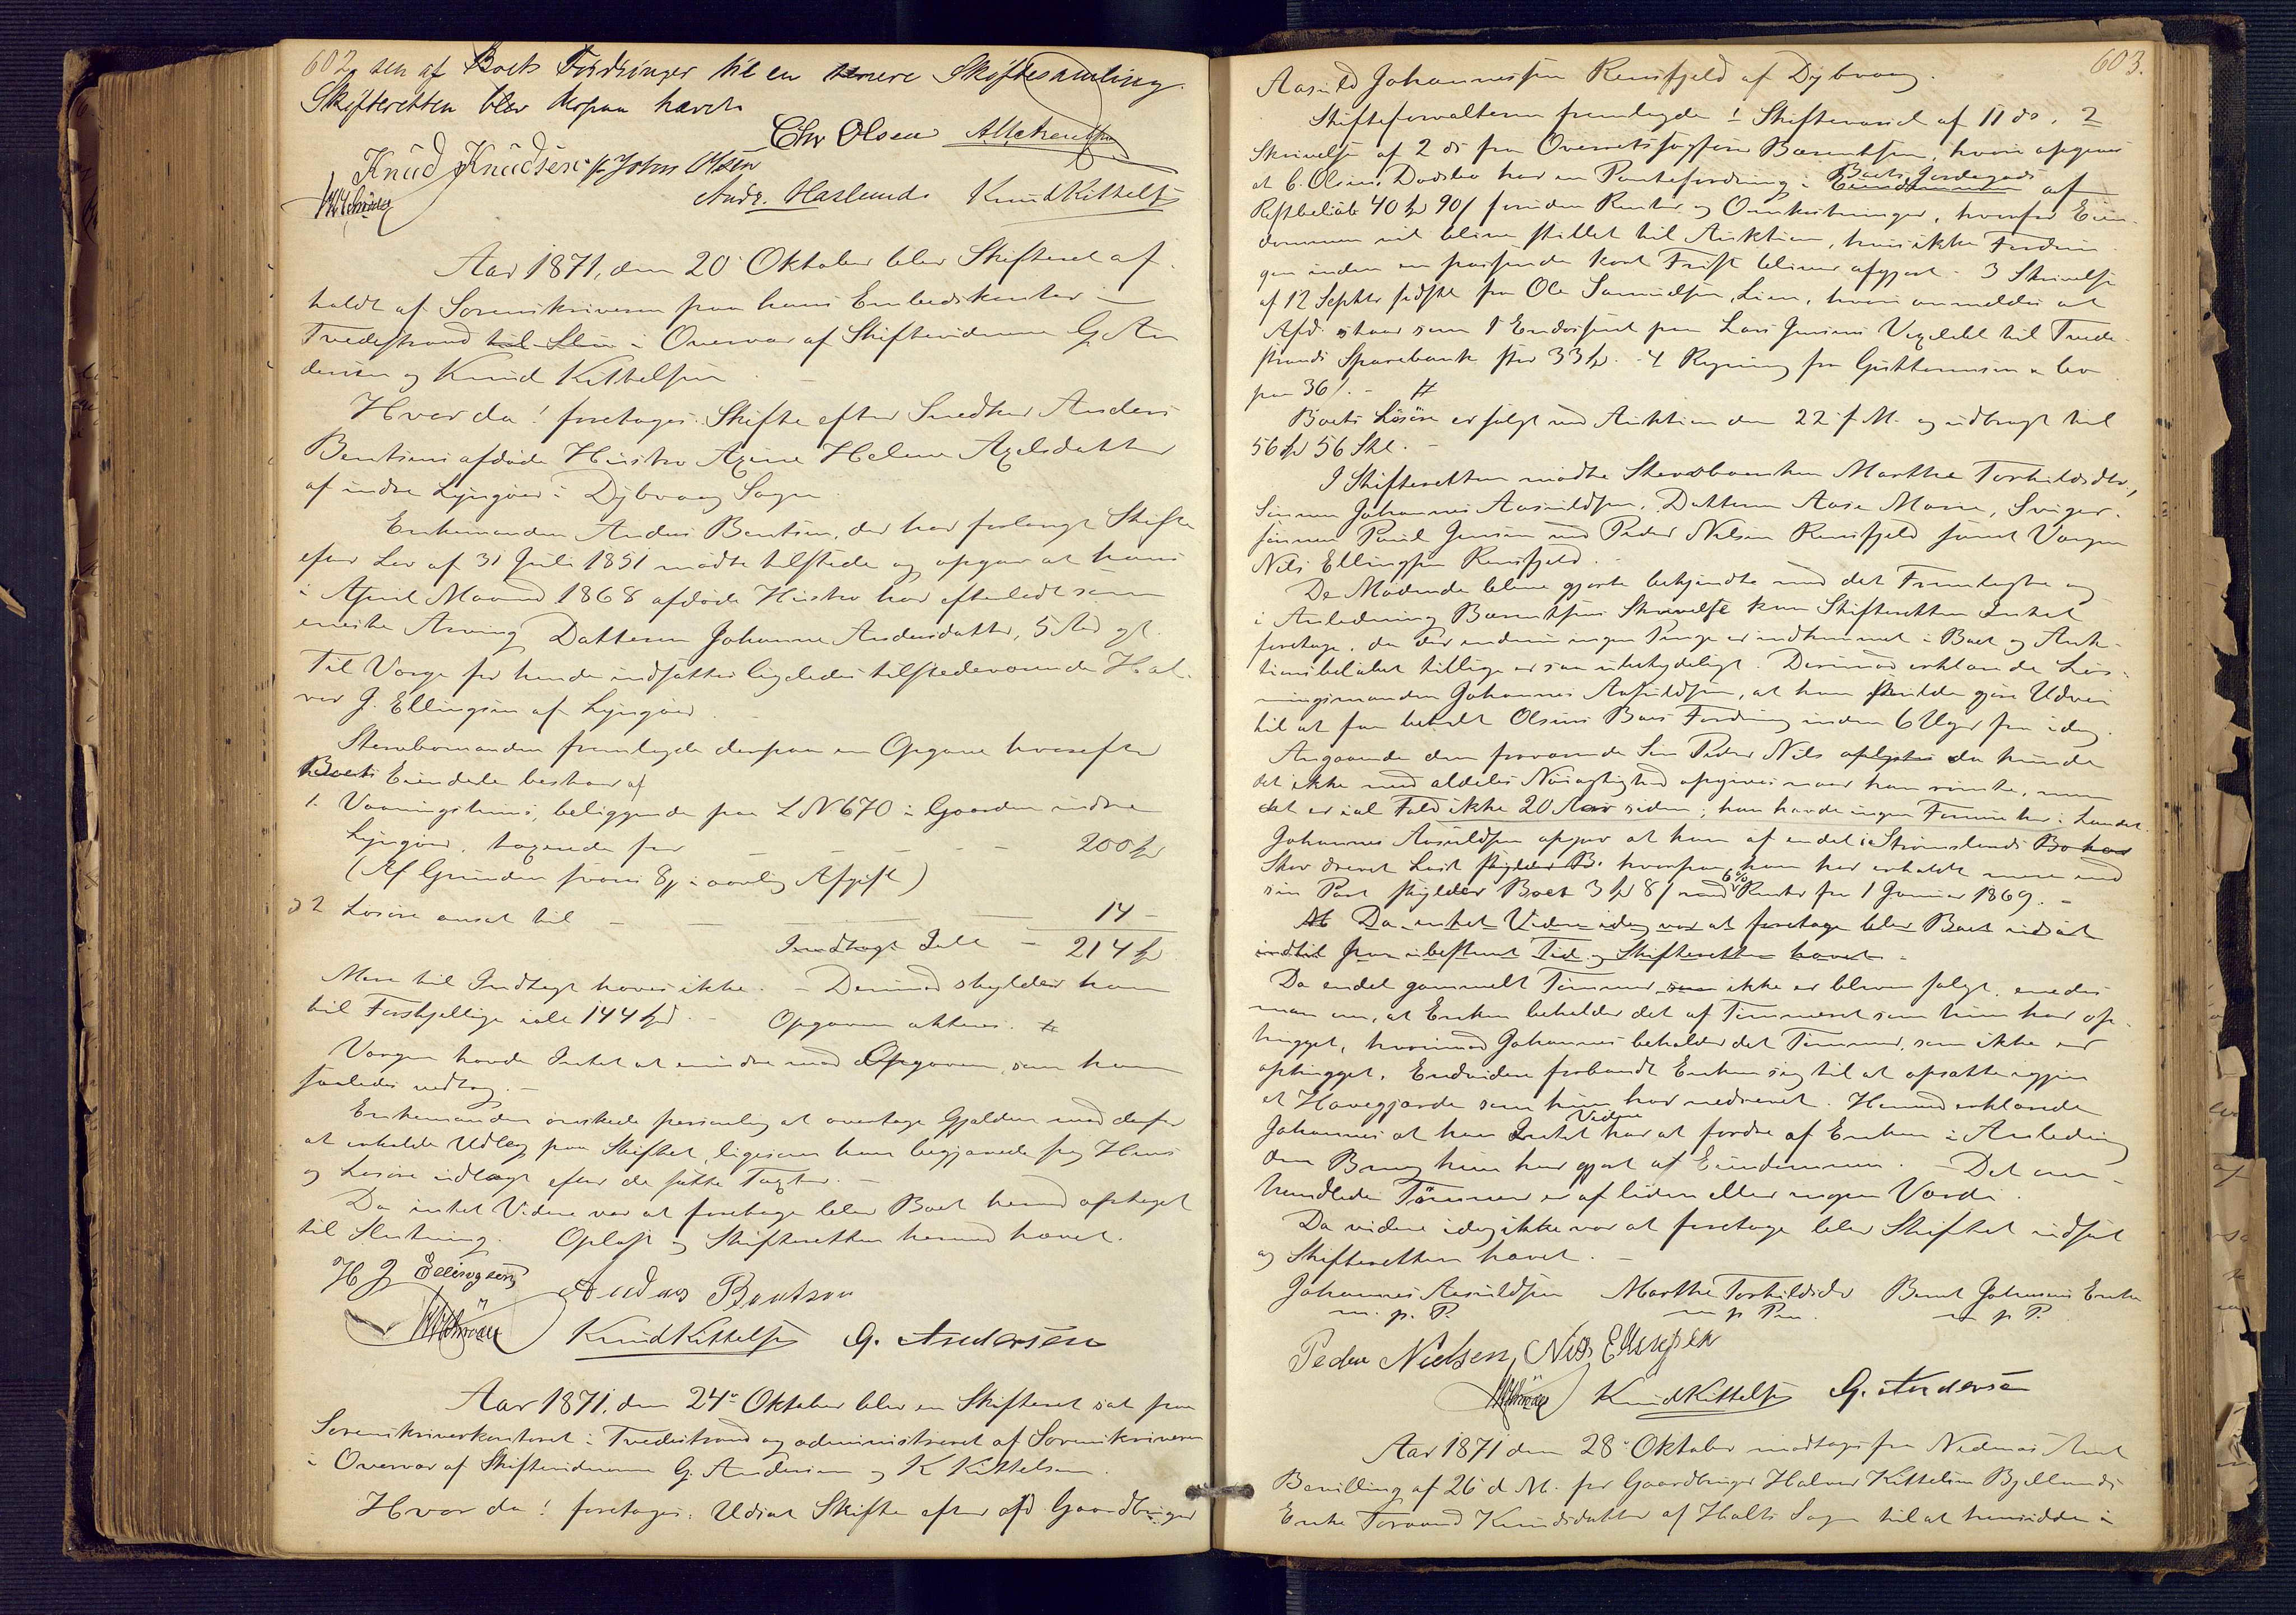 602
sen af Boets Fordringer til en senere Skiftesamling.
Skifteretten blev derpaa hævet.
Chr Olsen
Knud Knudsen p. John Olsen
Andr. Haslund Knud Kittelsen
Aar 1871, den 20 Oktober blev Skifteret af-
holdt af Sorenskriveren paa hans Embedskontor i
Tvedestrand i Overvær af Skiftevidnerne G. An
dersen og Knud Kittelsen.
Hvor da! foretages Skifte efter Snedker Anders
Bentsens afdøde Hustru Axine Helene Axelsdatter
af indre Lyngøer i Dybvaag Sogn
Enkemanden Anders Bentsen, der har forlangt Skifte
efter Lov af 31 Juli 1851 mødte tilstede og opgav at hans
i April Maaned 1868 afdøde Hustru har efterladt som
eneste Arving Datteren Johanne Andersdatter, 5 Aar gl.
Til Værge for hende indsattes ligeledes tilstedeværende Hal-
vor J. Ellingsen af Lyngøer.
Stervbomanden fremlagde derpaa en Opgave hvorefter
Boets Eiendele bestaar af
1. Vaaningshuus, beliggende paa LN 670 i Gaarden indre
Lyngøer, taxerede for 200 Spd
(Af Grunden svares i aarlig Afgift)
2 Løsøre ansat til 14 -
Indtægt Ialt - 214 Spd
Mere til Indtægt haves ikke. - Derimod skylder han
til Forskjellige ialt 144 Spd. - Opgaven akteres. #
Værgen havde Intet at erindre mod Opgaven, som han
saaledes vedtog. -
Enkemanden ønskede personlig at overtage Gjælden mod derfor
at erholde Udlæg paa Skiftet, ligesom han begjærede sig Huus
og Løsøre udlagt efter de satte Taxter. -
Da intet Videre var at foretage blev Boet hermed optaget
til Slutning. Oplæst og Skifteretten hermed hævet.
H J Ellingsen Anders Bentsen
Knud Kittelsen G. Andersen
Aar 1871, den 24de Oktober blev en Skifteret sat paa
Sorenskriverkontoret i Tvedestrand og administreret af Sorenskriveren
i Overvær af Skiftevidnerne G. Andersen og K Kittelsen.
Hvor da! foretages: Udsat Skifte efter afd Gaardbruger
603.
Aasuld Johannessen Rensfjeld af Dybvaag.
Skifteforvalteren fremlagde 1 Skiftevarsel af 11 ds. 2
Skrivelse af 2 ds fra Overretssagfører Barentsen, hvori opgives
at C. Olsens Dødsbo har en Pantefordring i Boets Jordegods af
Restbeløb 40 Spd 90 s foruden Renter og Omkostninger, hvorfor Eien-
dommen vil blive stillet til Auktion, hvis ikke Fordrin-
gen inden en passende kort Frist bliver afgjort. 3 Skrivelse
af 12 Septbr sidstl fra Ole Samuelsen, Lien, hvori anmeldes at
Afd. staar som 1 Endossent paa Lars Jensens Vexelobl til Tvede-
strands Sparebank stor 33 Spd. - 4 Regning fra Guttormsen & Co
paa 36 s. - #
Boets Løsøre er solgt ved Auktion den 22 f. M. og udbragt til
56 Spd 56 Skl. -
I Skifteretten mødte Stervboenken Marthe Torkildsdtr,
Sønnen Johannes Aasuldsen, Datteren Aase Marie, Sviger-
sønnen Poul Jensen med Peder Nilsen Rensfjeld samt Værgen
Nils Ellingsen Rensfjeld.
De Mødende bleve gjorte bekjendte med det Fremlagte og
i Anledning Barentsens Skrivelse kan Skifteretten Intet
foretage, da der endnu ingen Penge er indkommet i Boet og Auk-
tionsbeløbet tillige er saa ubetydeligt. Derimod erklærede Løs-
ningsmanden Johannes Aasuldsen, at han skulde gjøre Udvei
til at faa betalt Olsens Boes Fordring inden 6 Uger fra idag.
Angaaende den fraværende Søn Peder Nils oplystes da kunde
det ikke med aldeles Nøiagtighed opgives naar han reiste, men
det er ial Fald ikke 20 Aar siden; han havde ingen Formue her i Landet.
Johannes Aasuldsen opgav at han af endel i Strømslands Bo
Skov drevet Last hvorfra han har erholdt mere end
sin Part skylder Boet 3 Spd 8 s med 6% Renter fra 1 Januar 1869. -
Da intet Videre idag var at foretage blev Boet udsat
indtil paa ubestemt Tid og Skifteretten hævet. -
Da endel gammelt Tømmer ikke er bleven solgt, enedes
man om, at Enken beholder det af Tømmeret som hun har op-
hugget, hvorimod Johannes beholder det Tømmer, som ikke er
ophugget. Endvidere forbandt Enken sig til at opsætte igjen
et Havegjærde som hun har nedrevet. Hermed erklærede
Johannes at han Intet Videre har at fordre af Enken i Anledning
den Brug hun har gjort af Eiendommen. - Det om-
handlede Tømmer er af liden eller ingen Værdi.
Da videre idag ikke var at foretage blev Skiftet udsat
og Skifteretten hævet. -
Johannes Aasuldsen Marthe Torkildsdtr Bernt Johansens Enke
m. p. P. m p Pen. m p P.
Peder Nielsen, Nils Ellingsen
Knud Kittelsen G. Andersen
Aar 1871 den 28 Oktober modtages fra Nedenæs Amt
Bevilling af 26 d. M. for Gaardbruger Halvor Kittelsen Bjellands
Enke Torand Knudsdatter af Holts Sogn til at hensidde i